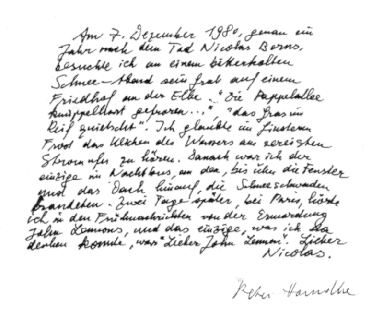 Am 7. Dezember 1980, genau ein
Jahr nach dem Tod Nicolas Borns,
besuchte ich an einem bitterkalten
Schnee-Abend sein Grab auf einem
Friedhof an der Elbe. "Die Pappelallee
gefroren...", "das Gras im
Reif quietscht". Ich glaubte im finsteren
Frost das Klicken des Wassers am vereisten
Stromufer zu hören. Danach war ich der
einzige im Nachtbus, an den, bis über die Fenster
und das Dach hinauf, die Schneeschwaden
brandeten. Zwei Tage später, bei Paris, hörte
ich in den Frühnachrichten von der Ermordung
John Lennons, und das einzige, was ich da
denken konnte, war: "Lieber John Lennon". Lieber
Nicolas.
Peter Handke